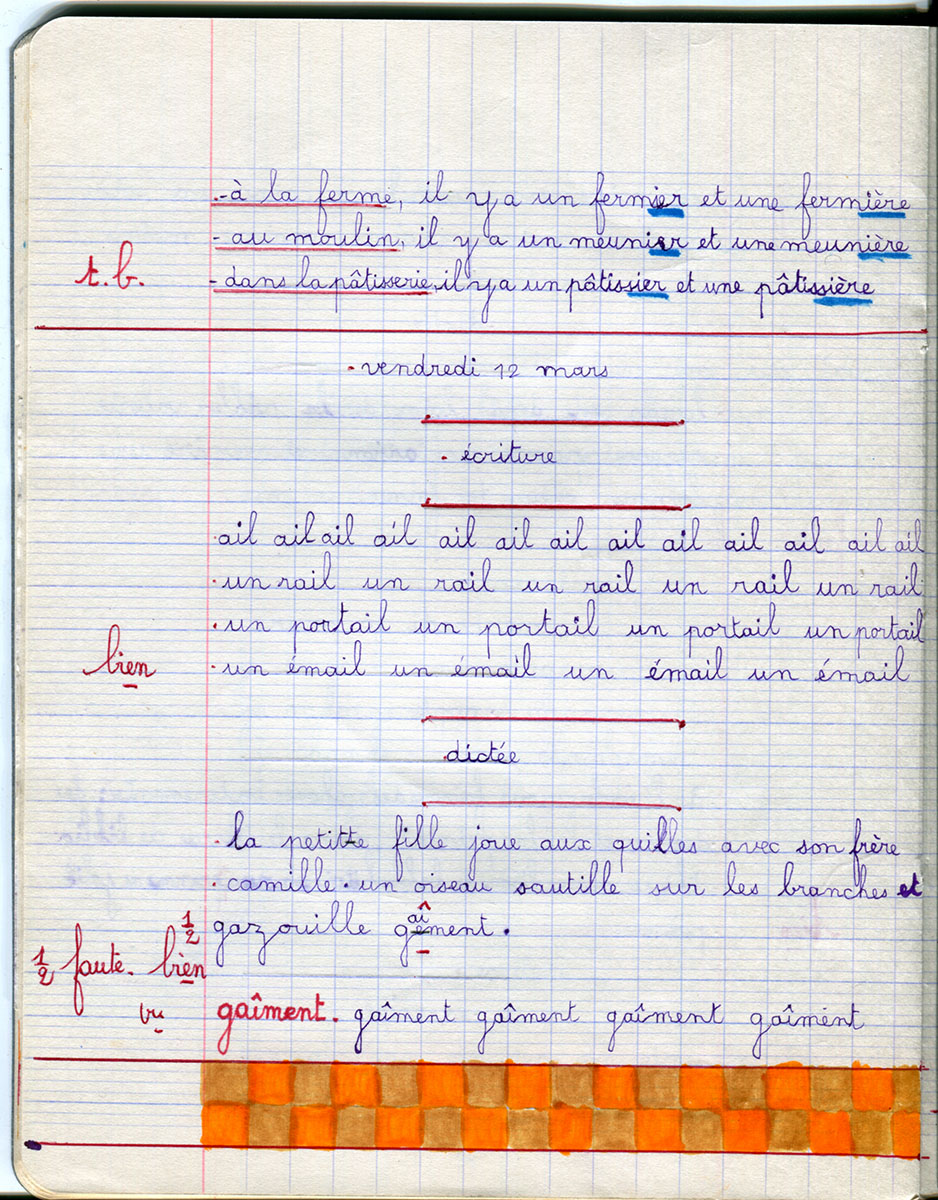 - à la ferme, il y a un fermier et une fermière
- au moulin, il y a un meunier et une meunière
t.b.
- dans la pâtisserie, il y a un pâtissier et une pâtissière
vendredi 12 mars
écriture
ail ail ail ail ail ail ail ail ail ail ail ail ail
un rail un rail un rail un rail un rail
un portail un portail un portail un portail
bien
un émail un émail un émail un émail
dictée
la petite fille joue aux quilles avec son frère
camille. un oiseau sautille sur les branches et
1/2
gazouille gaîment.
1/2 faute. bien
vu
gaîment. gaîment gaîment gaîment gaîment